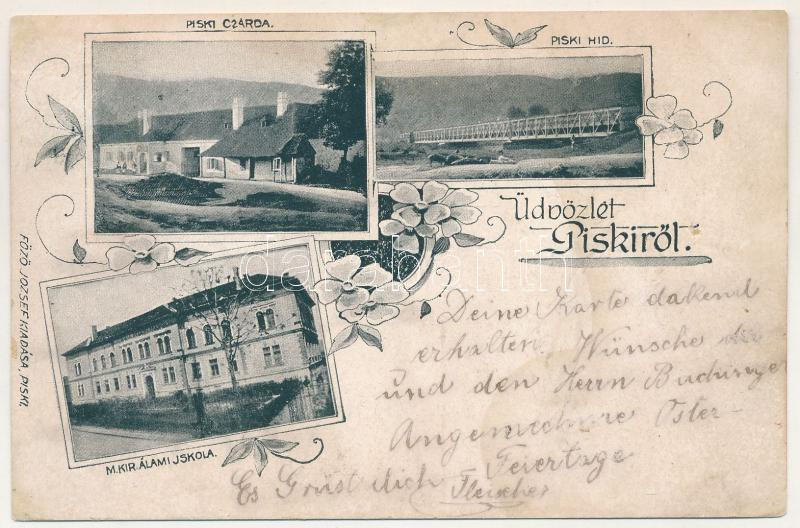 PISKI CZÁRDA.
PISKI HID.
Üdvözlet
Piskiről.
FÓZÓ JOZSEF KIADÁSA, PISKI.
M.KIR.ÁLAMI JSKOLA.
darabanth
Deine Karte dakend
erhalten. Wünsche
und den Herrn Buchinger
Angenehme Oster-
Feiertage
Es Grüst dich
Fleischer